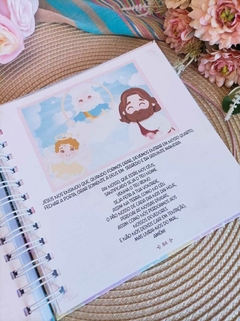 JESUS NOS ENSINOU QUE, QUANDO FORMOS ORAR, DEVEMOS ENTRAR EM NOSSO QUARTO,
FECHAR A PORTA, ORAR SOMENTE A DEUS EM SEGREDO E DA SEGUINTE MANEIRA:
PAI NOSSO, QUE ESTÁS NOS CÉUS,
SANTIFICADO SEJA O TEU NOME.
VENHA O TEU REINO.
SEJA FEITA A TUA VONTADE,
ASSIM NA TERRA COMO NO CÉU.
O PÃO NOSSO DE CADA DIA NOS DAI HOJE.
PERDOA AS NOSSAS DÍVIDAS,
ASSIM COMO NÓS PERDOAMOS
AOS NOSSOS DEVEDORES.
E NÃO NOS DEIXES CAIR EM TENTAÇÃO,
MAS LIVRA-NOS DO MAL.
AMÉM!